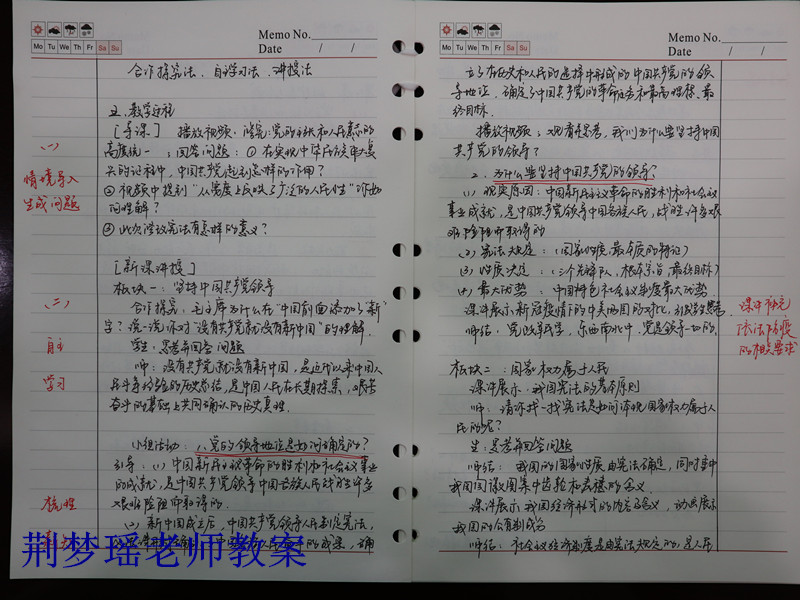 Memo No.
Mo Tu We Th Fr Sa Su
Date / /
合作探究法、自学习法、讲授法
五、教学过程
[导课] 播放视频：修宪：党的主张和人民意志的
高度统一；回答问题：① 在实现中华民族伟大复
兴的征程中，中国共产党起到怎样的作用？
② 视频中提到“从宪法上反映了广泛的人民性”
问理解？
③ 此次修改宪法有怎样的意义？
(一)
情境导入
生成问题
[新课讲授]
板块一：坚持中国共产党领导
合作探究：毛主席为什么在“中国前面添加了‘新’
字？说一说你对“没有共产党就没有新中国”的理解.
学生：思考并回答问题
师：没有共产党就没有新中国，是近代以来中国人
民斗争经验的历史总结，是中国人民在长期探索，艰苦
奋斗的基础上共同确认的历史真理.
(二)
自主
学习
小组活动：1、党的领导地位是如何确定的？
引导：(1) 中国新民主主义革命的胜利和社会主义事业
的成就，是中国共产党领导中国各族人民战胜许多
艰难险阻而取得的.
(2) 新中国成立后，中国共产党领导人民制定宪法，
的成果，确
梳理
荆梦瑶老师教案
Memo No.
Mo Tu We Th Fr Sa Su
Date / /
立了在历史和人民的选择中形成的中国共产党的领
导地位，确定了中国共产党的革命任务和最高理想、最
终目标.
播放视频：观看思考，我们为什么要坚持中国
共产党的领导？
2、为什么要坚持中国共产党的领导？
(1) 现实原因：中国新民主主义革命的胜利和社会主义
事业成就，是中国共产党领导中国各族人民，战胜许多艰
难险阻而取得的
(2) 宪法规定：(国家性质、最本质的特征)
(3) 性质决定：(三个先锋队，根本宗旨，最终目标)
(4) 最大优势：中国特色社会主义制度最大优势
课件展示：新冠疫情下的中美两国的对比，引发学生思考.
师结：党政军民学，东西南北中，党是领导一切的.
课件补充
依法防疫
的相关要求
板块二：国家权力属于人民
课件展示：我国宪法的基本原则
师：请你找一找宪法是如何体现国家权力属于人
民的呢？
生：思考并回答问题
师结：我国的国家性质由宪法确定，同时其中
我国国徽图案中齿轮和麦穗的含义.
课件展示：我国经济形式的饼图含义，动画展示
我国的公有制成分
师结：社会主义经济制度是由宪法规定的，是人民